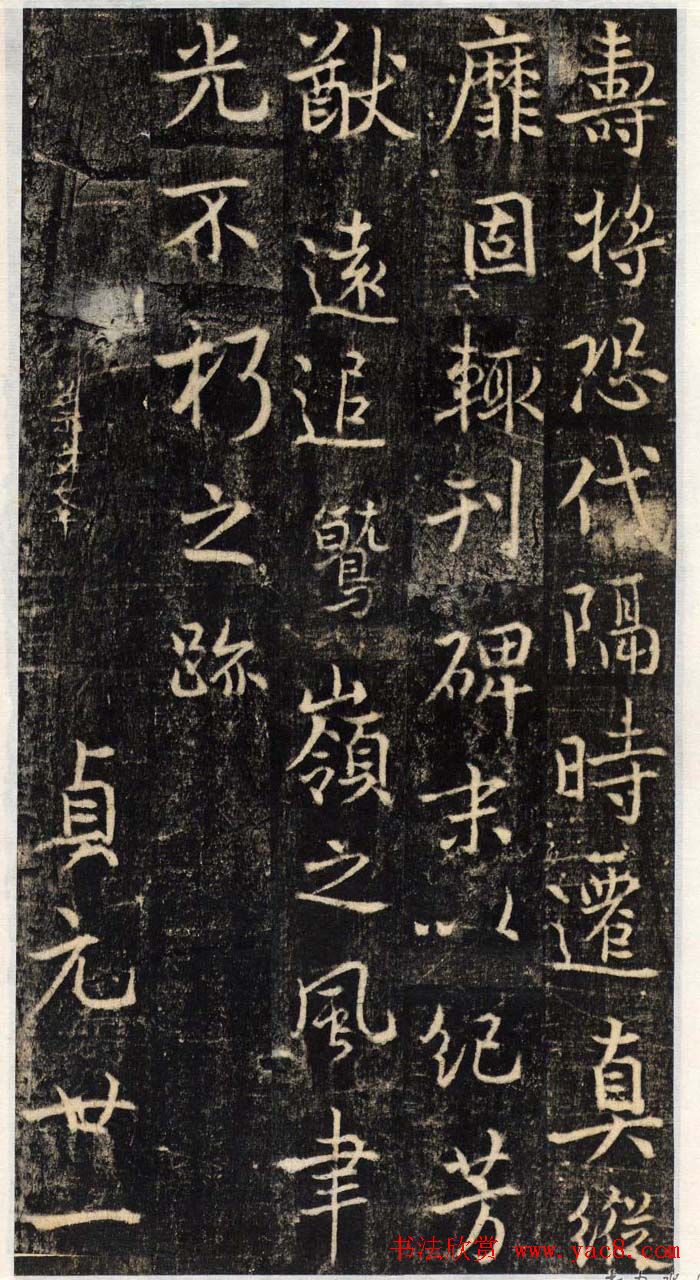 壽将恐代隔時遷真縱
靡固輙刊碑末以紀芳
猷遠追鷲嶺之風聿
光不朽之跡
貞元世一
书法欣赏 www.yac8.com